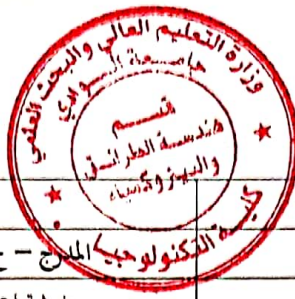 وزارة التعليم العالي والبحث العلمي
جامعة الوادي
قسم
هندسة الطرائق
والبيتروكيمياء
كلية التكنولوجيا
المدرج –